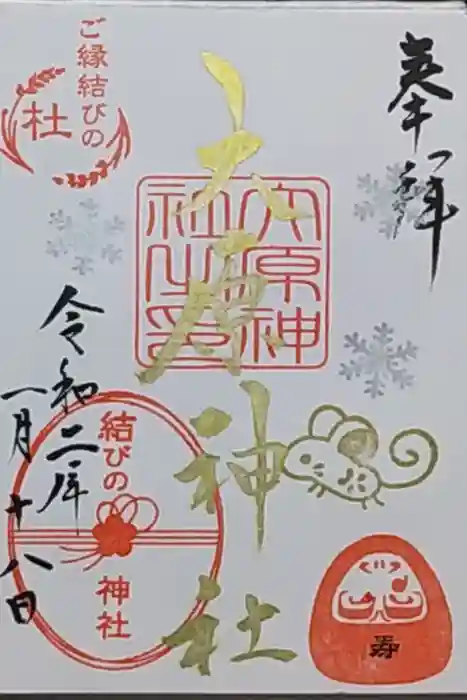 奉拝
大原神社
大原神
社之印
ご縁結びの
杜
令和二年
一月十八日
結びの
神社
寿